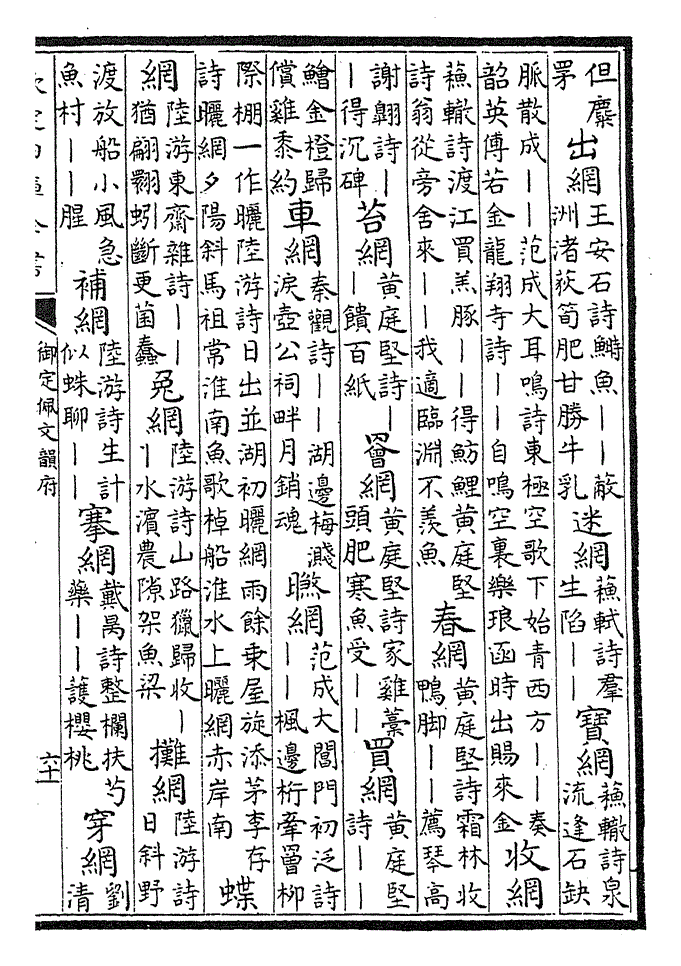 但麋罘出網王安石詩鰣魚——蔽洲渚荻筍肥甘勝牛乳迷網蘇軾詩羣生陷——寶網蘇轍詩泉流逢石缺
脈散成——范成大耳鳴詩東極空歌下始青西方——奏韶英傅若金龍翔寺詩——自鳴空裏樂琅函時出賜來金收網
蘇轍詩渡江買羔豚——得魴鯉黃庭堅詩翁從旁舍來——我適臨淵不羨魚春網黃庭堅詩霜林收鴨脚——薦琴高
謝翱詩——得沉碑苔網黃庭堅詩——饋百紙罾網黃庭堅詩家雞藁頭肥寒魚受——買網黃庭堅詩——
鱠金橙歸償雞黍約車網秦觀詩——湖邊梅濺淚壺公祠畔月銷魂㬠網范成大閶門初泛詩——楓邊桁牽罾柳
際棚一作曬陸游詩日出並湖初曬網雨餘乘屋旋添茅李存詩曬網夕陽斜馬祖常淮南魚歌棹船淮水上曬網赤岸南蝶
網陸游東齋雜詩——猶翩翾蚓斷更菌蠢兔網陸游詩山路獵歸收——水濱農隙架魚梁攤網陸游詩日斜野
渡放船小風急魚村——腥補網陸游詩生計似蛛聊——搴網戴昺詩整欄扶芍藥——護櫻桃穿網劉清
欽定四庫全書
御定佩文韻府
六十